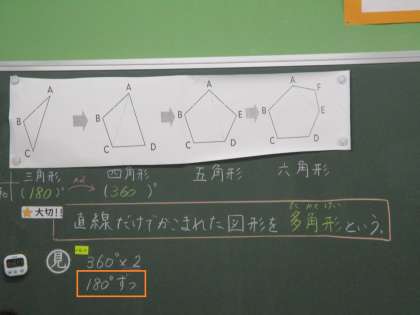 A A A A F
B B B E B E
C C D C D C D
三角形 四角形 五角形 六角形
(180)° (360)°
大切!!
たかくけい
直線だけでかこまれた図形を多角形という。
見 360°×2
180°ずつ